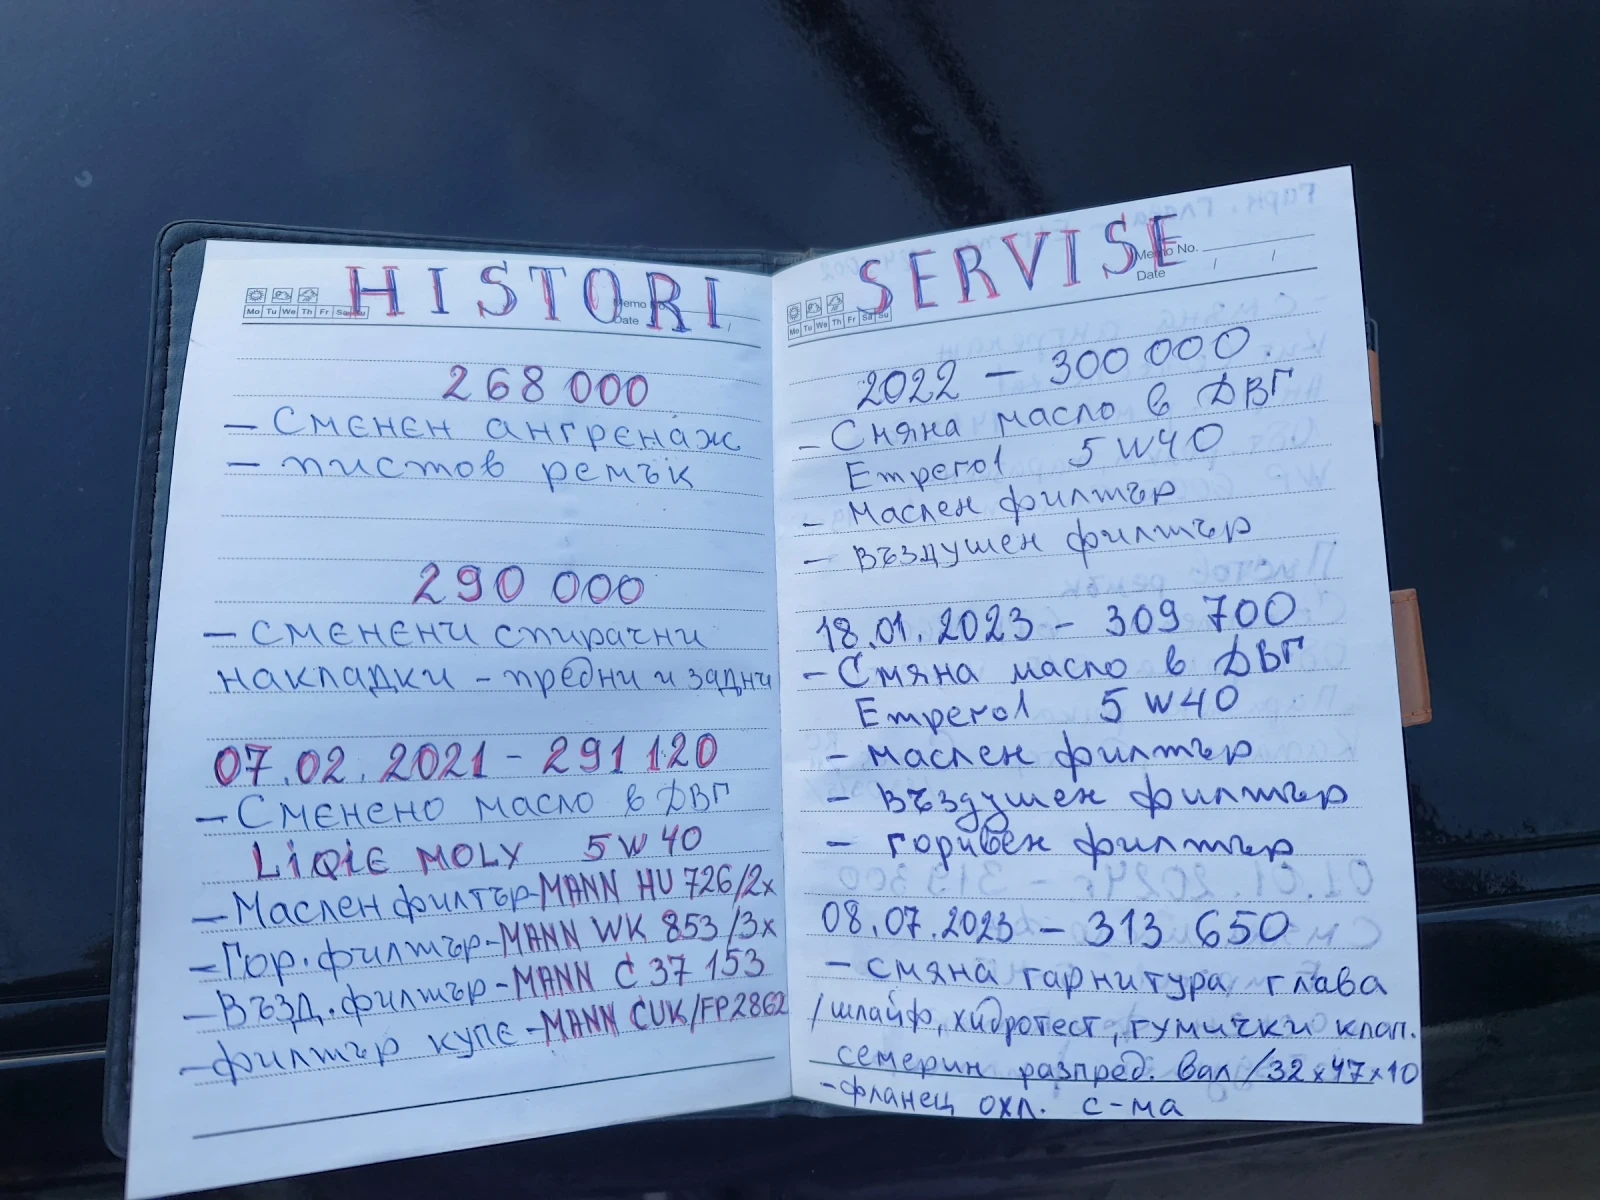 HISTORI
Mo Tu We Th Fr Sa Su
Memo No.
Date /
268 000
- Сменен ангренаж
- пистов ремък
290 000
- сменени спирачни
накладки - предни и задни
07.02.2021 - 291 120
- Сменено масло в ДВГ
LiQiE MOLY 5W40
- Маслен филтър - MANN HU 726/2x
- Гор. филтър - MANN WK 853/3x
- Възд. филтър - MANN C 37 153
- филтър купе - MANN CUK/FP2862
SERVISE
Mo Tu We Th Fr Sa Su
Memo No.
Date / /
2022 - 300 000.
- Смяна масло в ДВГ
Emperol 5W40
- Маслен филтър
- Въздушен филтър
18.01.2023 - 309 700
- Смяна масло в ДВГ
Emperol 5W40
- маслен филтър
- въздушен филтър
- горивен филтър
08.07.2023 - 313 650
- смяна гарнитура глава
/шлайф, хидротест, гумички клап.
семерин разпред. вал /32x47x10
- фланец охл. с-ма